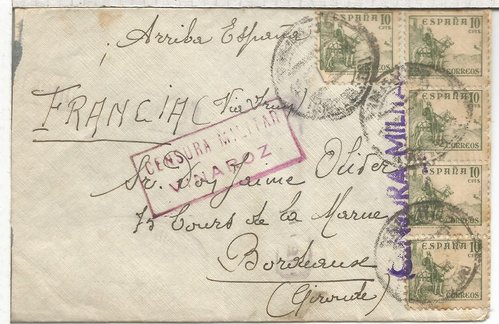 Arriba España
FRANCIA (Via Irun)
CENSURA MILITAR
NAROZ
Sr. Don Jaime Oliver
75 Cours de la Marne
Bordeaux
(Gironde)
CENSURA MILITAR
ESPAÑA 10 CTS.
CORREOS
ESPAÑA 10 CTS.
CORREOS
ESPAÑA 10 CTS.
CORREOS
ESPAÑA 10 CTS.
CORREOS
ESPAÑA 10 CTS.
CORREOS